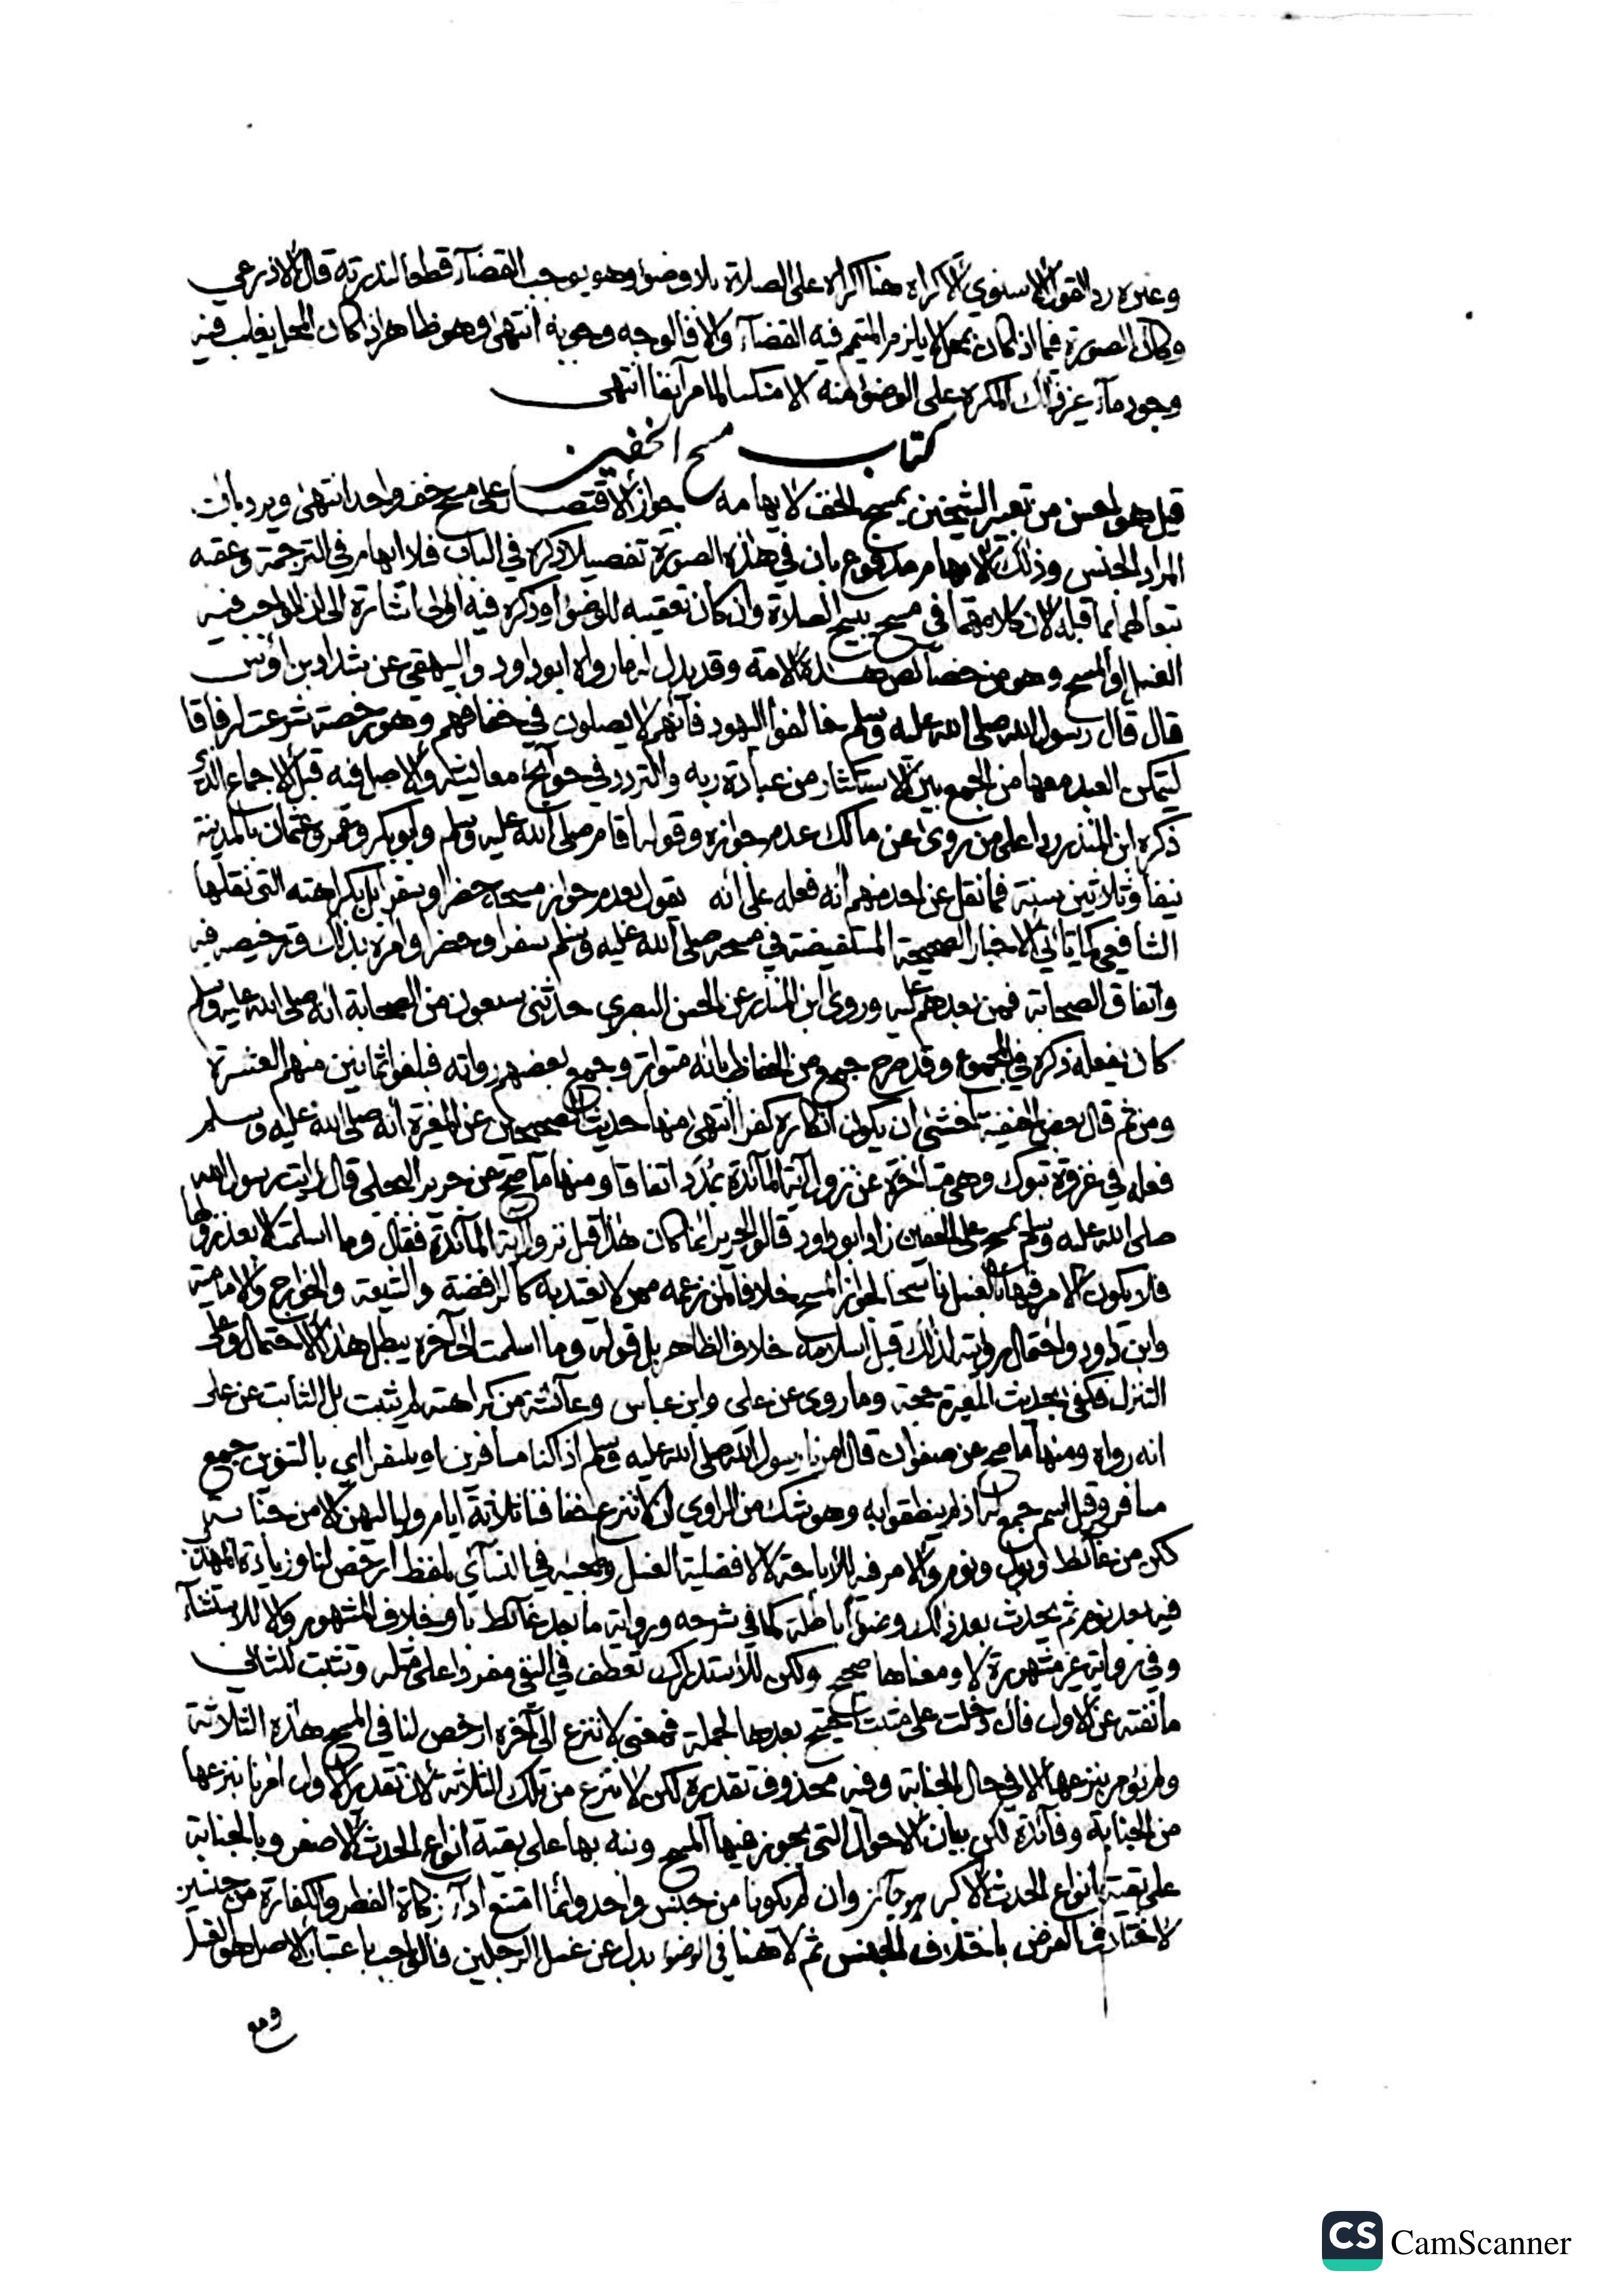 وغيره رد القول الاسنوي الاكراه هنا اكراه على الصلاة بلا وضوء وهو يوجب القضآء قطعا لندرته قال الاذرعي
وكان الصورة فيما اذا كان بمحل لا يلزم المتيمم فيه القضآء والا فالوجه وجوبه انتهى وهو ظاهر اذا كان المحل يغلب فيه
وجود مآء غير ذلك المكره على الوضوء منه لا مكنسا لما مر آنفا انتهى
كتاب مسح الخفين
قيل هو احسن من تعبير الشيخين بمسح الخف لايهامه جواز الاقتصار على مسح خف واحد انتهى ويرد بان
المراد الجنس وذلك الايهام مدفوع بان في هذه الصورة تفصيلا ذكره في الباب فلا ايهام في الترجمة وعقبه
تبعا لهما بما قبله لان كلا منهما في مسح يبيح الصلاة وان كان تعقيبه للوضوء وذكره فيه اولى اشارة الى ان الواجب فيه
الغسل او المسح وهو من خصائص هذه الامة وقد يدل له ما رواه ابو داود والبيهقي عن شداد بن اوس
قال قال رسول الله صلى الله عليه وسلم خالفوا اليهود فانهم لا يصلون في خفافهم وهو رخصة شرعت ارفاقا
ليتمكن العبد معها من الجمع بين الاستكثار من عبادة ربه والتردد في حوائج معايشه والاصل فيه قبل الاجماع الذي
ذكره ابن المنذر ردا على من روى عن مالك عدم جوازه وقوله اقام صلى الله عليه وسلم وابو بكر وعمر وعثمان بالمدينة
نيفا وثلاثين سنة فما نقل عن احد منهم انه فعله على انه يقول بعدم جواز مسحه حضرا وسفرا بل بكراهته التي نقلها
الشافعي كما ياتي الاخبار الصحيحة المستفيضة في مسحه صلى الله عليه وسلم سفرا وحضرا وامره بذلك وترخيصه فيه
واتفاق الصحابة فمن بعدهم عليه وروى ابن المنذر عن الحسن البصري حدثني سبعون من الصحابة انه صلى الله عليه وسلم
كان يفعله ذكره في المجموع وقد صرح جمع من الحفاظ بانه متواتر وجمع بعضهم رواته فبلغوا ثمانين منهم العشرة
ومن ثم قال بعض الحنفية اخشى ان يكون انكاره كفرا انتهى منها حديث الصحيحين عن المغيرة انه صلى الله عليه وسلم
فعله في غزوة تبوك وهي متاخرة عن نزول آية المآئدة بمدد اتفاقا ومنها ما صح عن جرير البجلي قال رايت رسول الله
صلى الله عليه وسلم يمسح على الخفين زاد ابو داود قالوا لجرير انما كان هذا قبل نزول آية المآئدة فقال وما اسلمت الا بعد نزولها
فلا يكون الامر فيها بالغسل ناسخا لجواز المسح خلافا لمن زعمه ممن لا يعتد به كالرافضة والشيعة والخوارج والامامية
وابن داود واحتمال رؤيته لذلك قبل اسلامه خلاف الظاهر بل قوله وما اسلمت الى آخره يبطل هذا الاحتمال وعلى
التنزل فكفى بحديث المغيرة حجة وما روي عن علي وابن عباس وعآئشة من كراهته لم يثبت بل الثابت عن علي
انه رواه ومنها ما صح عن صفوان قال امرنا رسول الله صلى الله عليه وسلم اذا كنا مسافرين او سفرا اي بالتنوين جمع
مسافر وقيل اسم جمع له اذ لم ينطقوا به وهو شك من الراوي ان لا ننزع خفافنا ثلاثة ايام ولياليهن الا من جنابة
لكن من غآئط او بول ونوم والامر فيه للاباحة لافضلية الغسل ولمجيئه في النسآي بلفظ ارخص لنا وزيادة المهذب
فيه بعد نوم ثم يحدث بعد ذلك وضوءا باطلة كما في شرحه ورواية ما بعد غآئط باو خلاف المشهور والا للاستثنآء
وفي رواية غير مشهورة لا ومعناها صحيح ولكن للاستدراك تعطف في النفي مفردا على مثله وتثبت للثاني
ما نفته عن الاول فان دخلت على مثبت احتيج بعدها لجملة فمعنى لا ننزع الى آخره ارخص لنا في المسح هذه الثلاثة
ولم نؤمر بنزعها الا في حال الجنابة وفيه محذوف تقديره لكن لا ننزع من تلك الثلاثة لان تقدير الاول امرنا بنزعها
من الجنابة وفآئدة لكن بيان الاحوال التي يجوز فيها المسح ونبه بها على بقية انواع الحدث الاصغر وبالجنابة
على بقية انواع الحدث الاكبر وان لم يكونا من جنس واحد وانما امتنع ادآء زكاة الفطر والكفارة من جنسين
لاختلاف الغرض باختلاف الجنس ثم لا هنا في الوضوء بدل عن غسل الرجلين فالواجب باعتبار الاصل هو الغسل
ومع
CS CamScanner